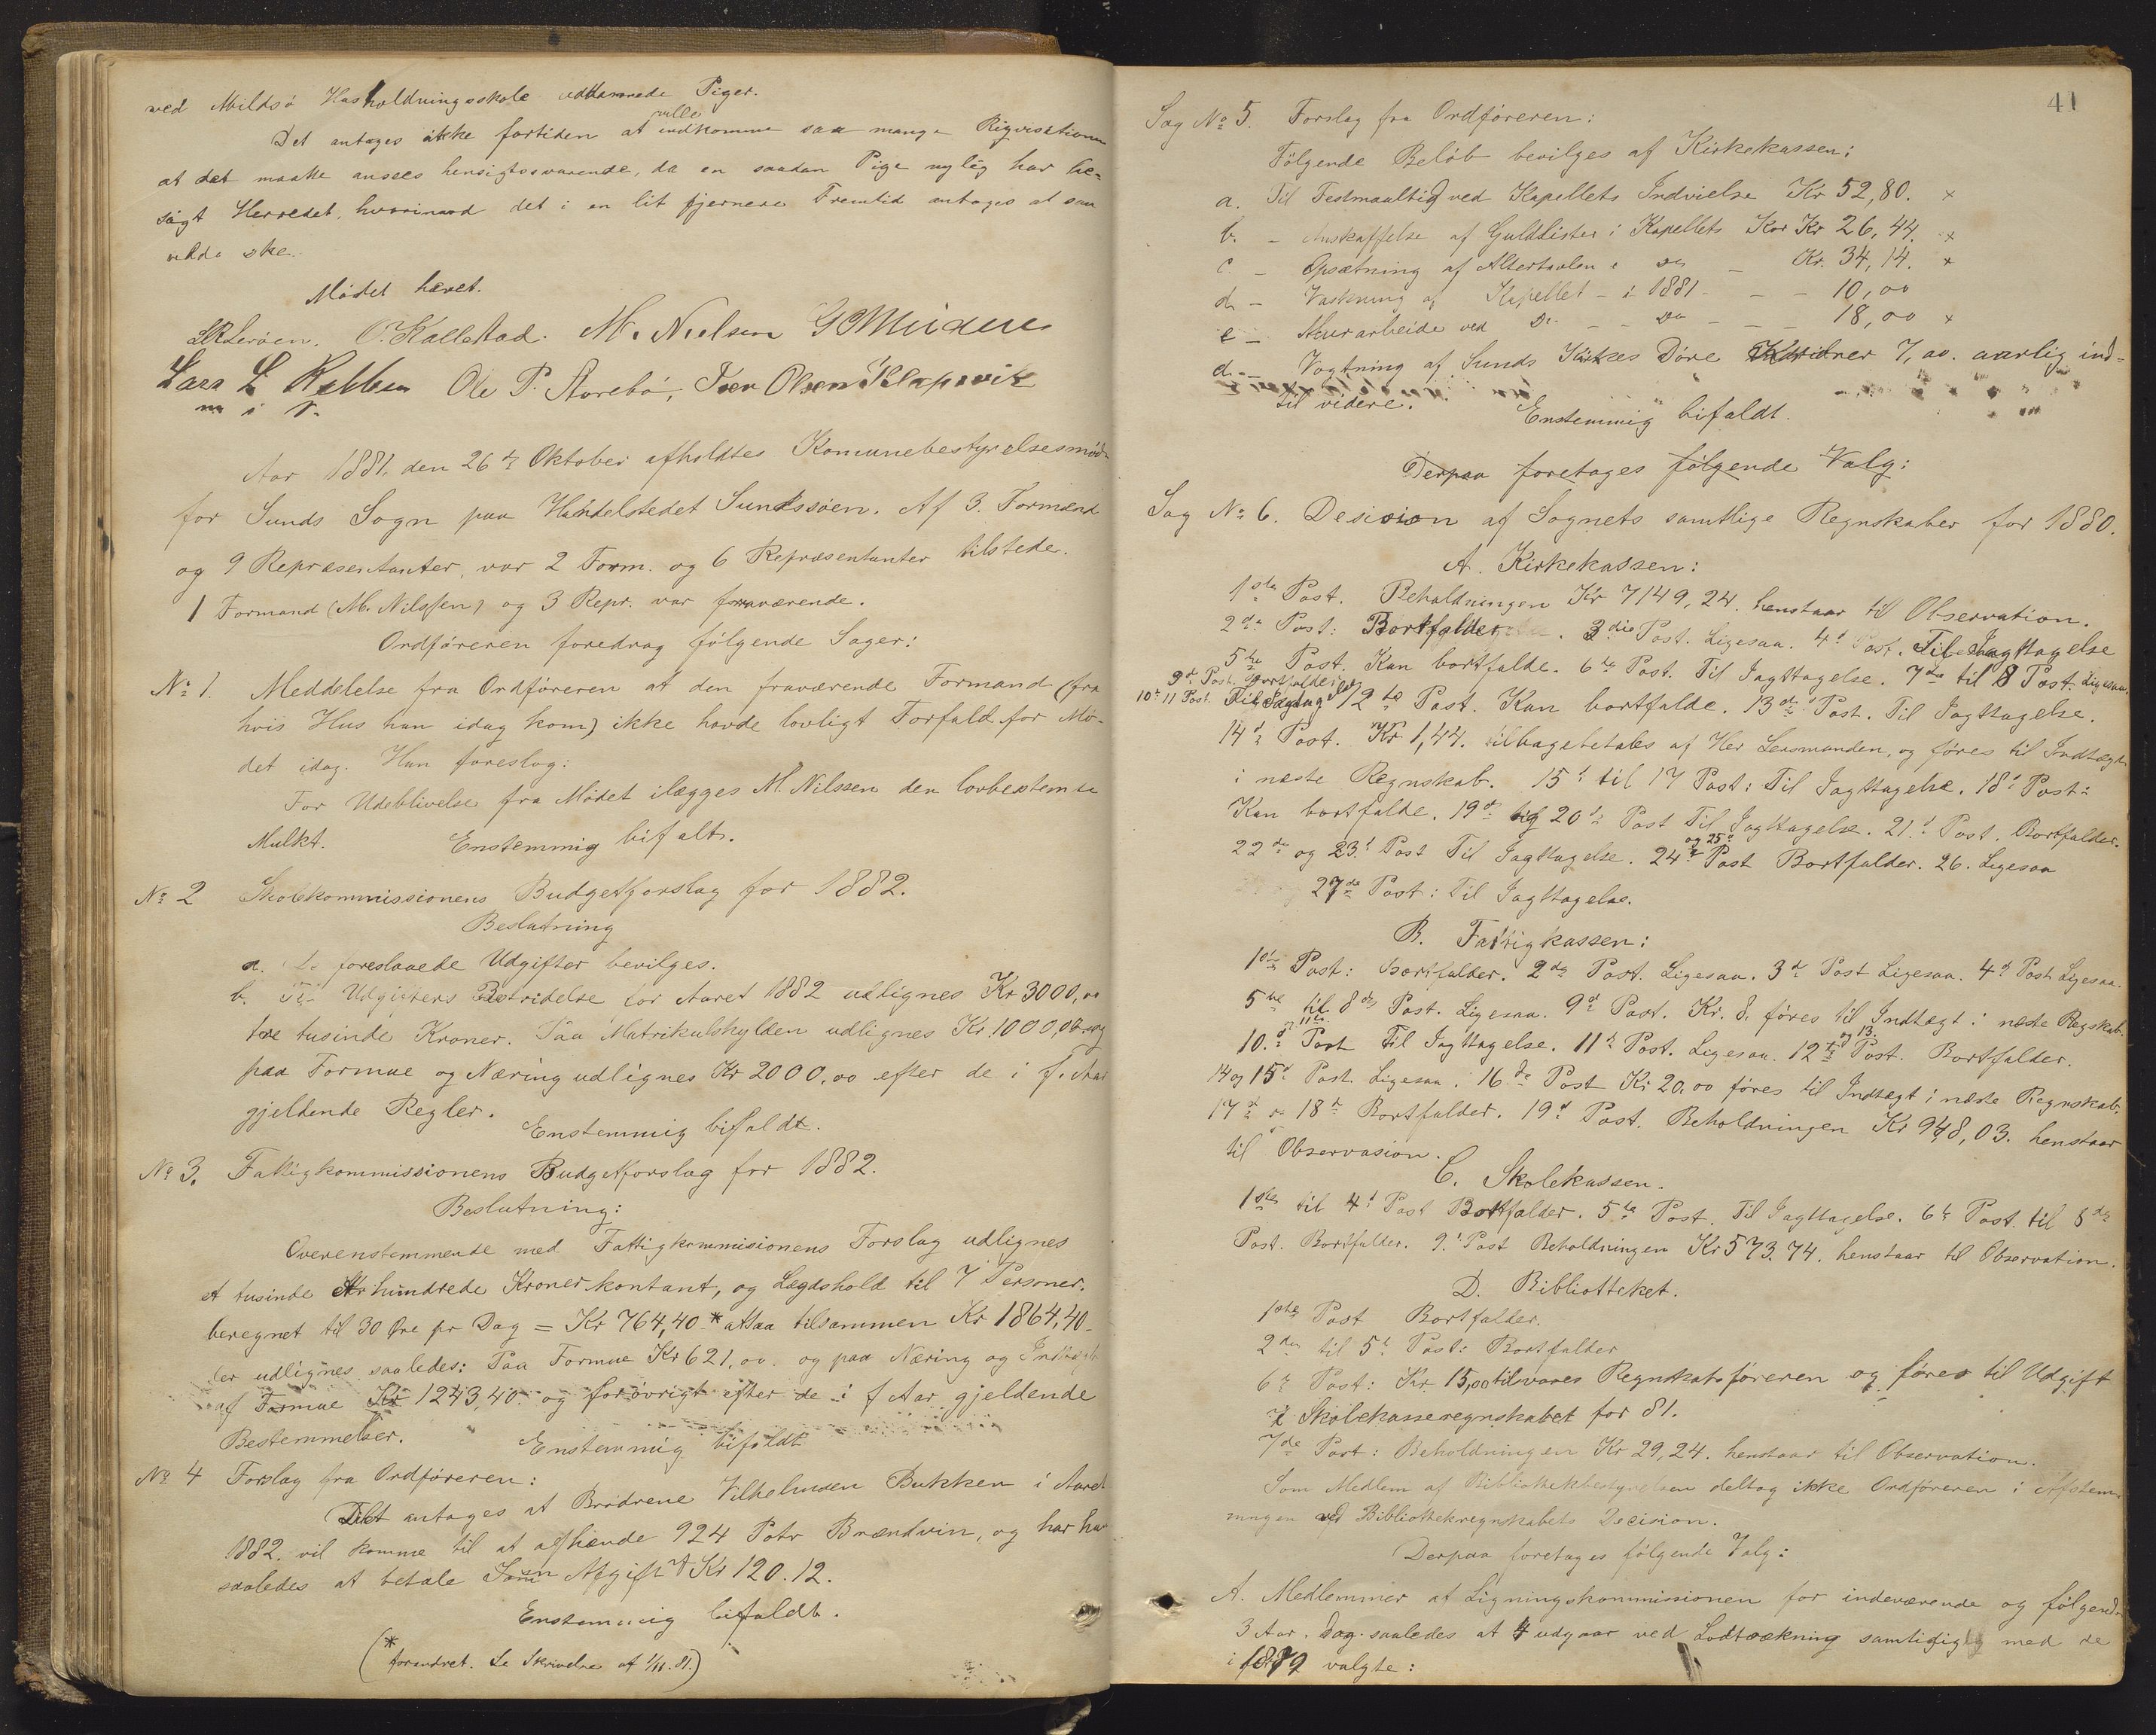 ved Mildsø Husholdningsskole uddannede Piger.
Det antages ikke fortiden at ville indkomme saa mange Rigvisitioner
at det maatte ansees hensigtssvarende, da en saadan Pige nylig har be-
søgt Herredet, hvorimod det i en lit fjernere Fremtid antages at saa
vilde ske.
Mødet hævet.
O. Kallestad. M. Nielsen
Lars L Ole P. Storebø, Iver Olsen Klapsvik
m i P.
Aar 1881, den 26de Oktober afholdtes Komunebestyrelsesmøde
for Sunds Sogn paa Handelstedet Sundssøen. Af 3. Formænd
og 9 Repræsentanter, var 2 Form. og 6 Repræsentanter tilstede.
1 Formand (M. Nilssen) og 3 Repr. var fraværende.
Ordføreren foredrog følgende Sager:
No 1. Meddelelse fra Ordføreren at den fraværende Formand (fra
hvis Hus han idag kom) ikke havde lovligt Forfald for Mø-
det idag. Han foreslog:
For Udeblivelse fra Mødet ilægges M. Nilssen den lovbestemte
Mulkt. Enstemmig bifalt.
No 2 Skolekommissionens Budgetforslag for 1882.
Beslutning
a. De foreslaaede Udgifter bevilges.
b. Til Udgifters Bestridelse for Aaret 1882 udlignes Kr 3000,00
tre tusinde Kroner. Paa Matrikulskylden udlignes Kr. 1000,00 og
paa Formue og Næring udlignes Kr 2000,00 efter de i f. Aar
gjeldende Regler.
Enstemmig bifaldt.
No 3. Fattigkommissionens Budgetforslag for 1882.
Beslutning:
Overenstemmende med Fattigkommisionens Forslag udlignes
et tusinde hundrede Kroner kontant, og Lægdshold til 7 Personer.
beregnet til 30 Øre pr Dag = Kr 764,40 * altsaa tilsammen Kr 1864,40
der udlignes saaledes: Paa Formue Kr 621,00. og paa Næring og Indtægt
af Formue Kr 1243,40. og forøvrigt efter de i f Aar gjeldende
Bestemmelser. Enstemmig bifaldt
No 4 Forslag fra Ordføreren:
Det antages at Brødrene Vilhelmsen Bukken i Aaret
1882. vil komme til at afhænde 924 Potr Brændvin, og har han
saaledes at betale Som Afgift Kr 120.12.
Enstemmig bifaldt.
(* forandret. Se Skrivelse af 1/11.81.)
41
Sag No 5. Forslag fra Ordføreren:
Følgende Beløb bevilges af Kirkekassen:
a. Til Festmaaltid ved Kapellets Indvielse Kr 52,80. x
b. - Anskaffelse af Guldlister i Kapellets Kor Kr 26,44. x
c. - Opsætning af Altertavlen i Do - Kr. 34,14. x
d - Vaskning af Kapellet - i 1881 - - - 10,00
e - Murarbeide ved Do - - Do - - - 18,00 x
d. - Vogtning af Sunds Kirkes Døre Kroner 7,00. aarlig ind-
til videre. Enstemmig bifaldt.
Derpaa foretages følgende Valg:
Sag No 6. Desision af Sognets samtlige Regnskaber for 1880.
A. Kirkekassen:
1ste Post. Beholdningen Kr 7149,24. henstaar til Observation.
2de Post: Bortfalder. 3die Post. Ligesaa. 4d Post. Til Iagttagelse
5te Post. Kan bortfalde. 6te Post. Til Iagttagelse. 7de til 8 Post. Ligesaa.
9d Post. Bortfalder
10de 11 Post. Til Iagttagelse 12te Post. Kan bortfalde. 13de Post. Til Iagttagelse.
14d Post. Kr 1,44. tilbagebetales af Her Lensmanden, og føres til Indtægt
i næste Regnskab. 15d til 17 Post: Til Iagttagelse. 18d Post:
Kan bortfalde. 19de og 20de Post Til Iagttagelse. 21d Post. Bortfalder.
22de og 23d Post Til Iagttagelse. 24de og 25d Post Bortfalder. 26. Ligesaa
27de Post: Til Iagttagelse.
B. Fattigkassen:
1ste Post: Bortfalder. 2de Post. Ligesaa. 3d Post Ligesaa. 4d Post Ligesaa.
5te til 8de Post. Ligesaa. 9d Post. Kr. 8, føres til Indtægt i næste Regskab.
10.d Post Til Iagttagelse. 11te Post. Ligesaa. 12te og 13. Post. Bortfalder.
14 og 15d Post. Ligesaa. 16de Post Kr 20,00 føres til Indtægt i næste Regnskab.
17d og 18d Bortfalder. 19d Post. Beholdningen Kr 948,03. henstaar
til Observasion.
C. Skolekassen.
1ste til 4d Post Bortfalder. 5te Post. Til Iagttagelse. 6te Post til 8de
Post. Bortfalder. 9.d Post Beholdningen Kr 573.74. henstaar til Observation.
D. Bibliotteket.
1ste Post Bortfalder.
2den til 5t Post: Bortfalder
6te Post: Kr. 15,00 tilvares Regnskabsføreren og føres til Udgift
i Skolekasseregnskabet for 81.
7de Post: Beholdningen Kr 29,24. henstaar til Observation.
Som Medlem af Bibliothekbestyrelsen deltog ikke Ordføreren i Afstem-
ningen ved Bibliothekregnskabets Decision.
Derpaa foretages følgende Valg:
A. Medlemmer af Ligningskommissionen for indeværende og følgende
3 Aar. Dog saaledes at 4 udgaar ved Lodtrækning samtidig med de
i 1879 valgte: